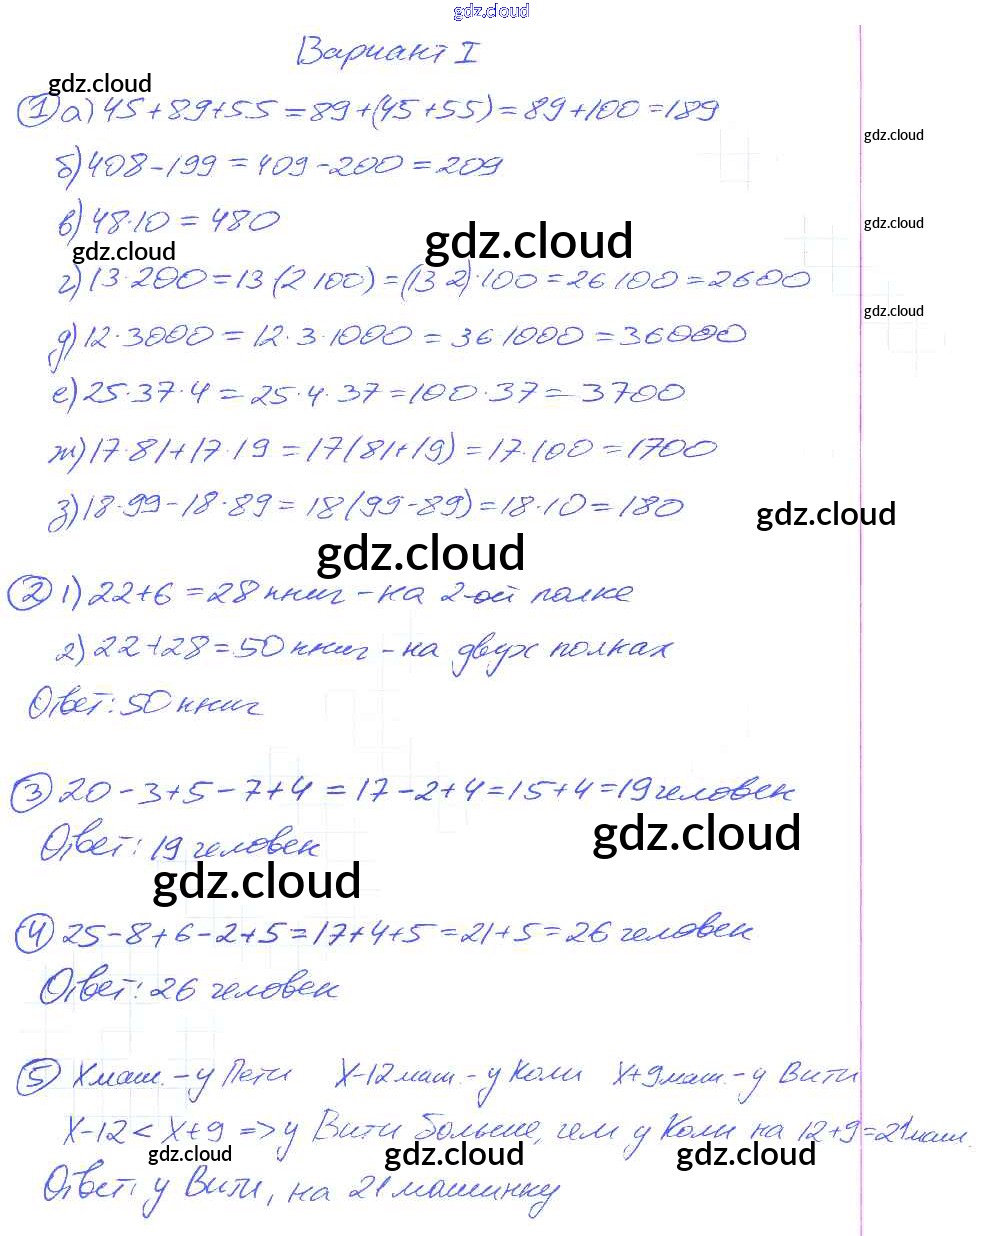 gdz.cloud
Вариант I
gdz.cloud
① а) 45+89+55 = 89+(45+55) = 89+100 = 189
gdz.cloud
б) 408-199 = 409-200 = 209
в) 48·10 = 480
gdz.cloud
gdz.cloud
gdz.cloud
г) 13·200 = 13(2 100) = (13 2)·100 = 26 100 = 2600
gdz.cloud
д) 12·3000 = 12·3·1000 = 36 1000 = 36000
е) 25·37·4 = 25·4·37 = 100·37 = 3700
ж) 17·81+17·19 = 17(81+19) = 17·100 = 1700
з) 18·99-18·89 = 18(99-89) = 18·10 = 180
gdz.cloud
gdz.cloud
② 1) 22+6 = 28 книг - на 2-ой полке
2) 22+28 = 50 книг - на двух полках
Ответ: 50 книг
③ 20-3+5-7+4 = 17-2+4 = 15+4 = 19 человек
gdz.cloud
Ответ: 19 человек
gdz.cloud
④ 25-8+6-2+5 = 17+4+5 = 21+5 = 26 человек
Ответ: 26 человек
⑤ X маш. - у Пети X-12 маш. - у Коли X+9 маш. - у Вити
X-12 < X+9 => у Вити больше, чем у Коли на 12+9=21 маш.
gdz.cloud gdz.cloud gdz.cloud
Ответ: у Вити, на 21 машинку